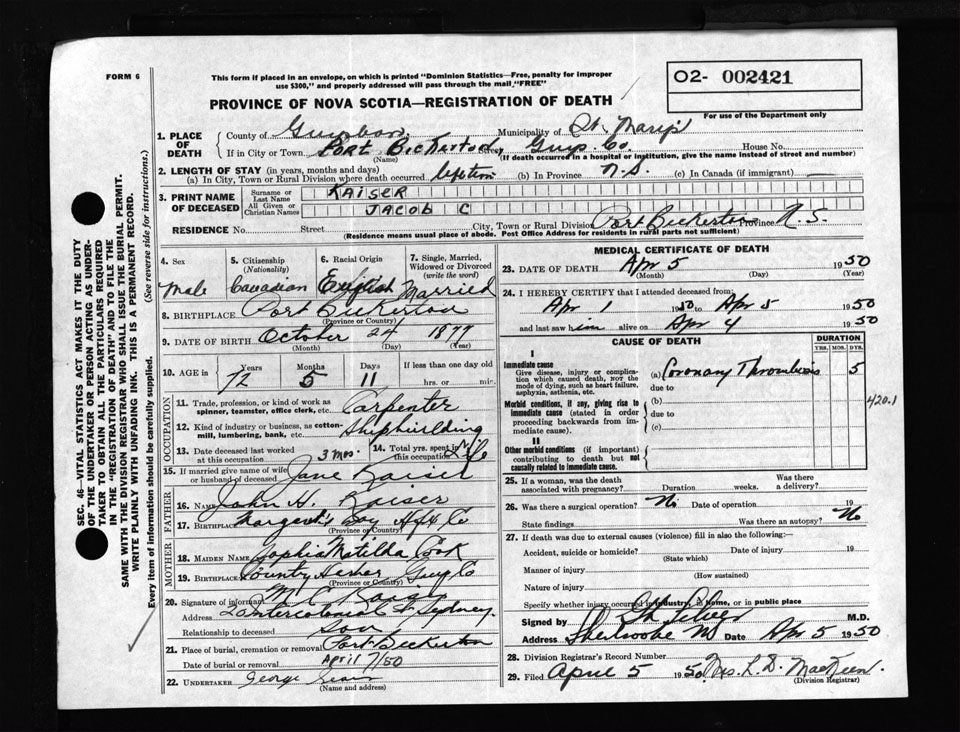 FORM 6
This form if placed in an envelope, on which is printed "Dominion Statistics—Free, penalty for improper
use $300," and properly addressed will pass through the mail "FREE"
O2- 002421
For use of the Department only
PROVINCE OF NOVA SCOTIA—REGISTRATION OF DEATH
1. PLACE OF DEATH
County of Municipality of St. Mary's
If in City or Town Port Bickerton Street Guys. Co. House No.
(Name) (If death occurred in a hospital or institution, give the name instead of street and number)
2. LENGTH OF STAY (in years, months and days)
(a) In City, Town or Rural Division where death occurred lifetime (b) In Province N.S. (c) In Canada (if immigrant) —
3. PRINT NAME OF DECEASED
Surname or Last Name KAISER
All Given or Christian Names JACOB C
RESIDENCE No. Street City, Town or Rural Division Port Bickerton Province N.S.
(Residence means usual place of abode. Post Office Address for residents in rural parts not sufficient)
4. Sex 5. Citizenship (Nationality) 6. Racial Origin 7. Single, Married, Widowed or Divorced (write the word)
Male Canadian English Married
8. BIRTHPLACE Port Bickerton
(Province or Country)
9. DATE OF BIRTH October 24 1877
(Month) (Day) (Year)
10. AGE in Years Months Days If less than one day old
72 5 11 hrs. or min.
OCCUPATION
11. Trade, profession, or kind of work as
spinner, teamster, office clerk, etc. Carpenter
12. Kind of industry or business, as cotton-
mill, lumbering, bank, etc. Shipbuilding
13. Date deceased last worked
at this occupation 3 mos.
14. Total yrs. spent in
this occupation
15. If married give name of wife
or husband of deceased Jane Kaiser
FATHER
16. Name John H. Kaiser
17. Birthplace Margaret's Bay Hfx Co
(Province or Country)
MOTHER
18. Maiden Name Sophia Matilda Cook
19. Birthplace Country Harbor Guys Co
(Province or Country)
20. Signature of informant
Address Intercolonial St Sydney.
Relationship to deceased Son
21. Place of burial, cremation or removal Port Bickerton
Date of burial or removal April 7/50
22. UNDERTAKER George
(Name and address)
MEDICAL CERTIFICATE OF DEATH
23. DATE OF DEATH Apr 5 1950
(Month) (Day) (Year)
24. I HEREBY CERTIFY that I attended deceased from:
Apr 1 1950 to Apr 5 1950
and last saw him alive on Apr 4 1950
CAUSE OF DEATH
DURATION
YRS. MOS. DYS.
I
Immediate cause
Give disease, injury or complica-
tion which caused death, not the
mode of dying, such as heart failure,
asphyxia, asthenia, etc.
(a) Coronary Thrombosis 5
due to
Morbid conditions, if any, giving rise to
immediate cause (stated in order
proceeding backwards from im-
mediate cause).
(b)
due to
(c)
420.1
II
Other morbid conditions (if important)
contributing to death but not
causally related to immediate cause.
25. If a woman, was the death
associated with pregnancy? Duration weeks. Was there
a delivery?
26. Was there a surgical operation? No Date of operation 19
State findings Was there an autopsy? No
27. If death was due to external causes (violence) fill in also the following:
Accident, suicide or homicide? Date of injury 19
(State which)
Manner of injury
(How sustained)
Nature of injury
Specify whether injury occurred in industry, in home, or in public place
Signed by M.D.
Address Sherbrooke NS Date Apr 5 1950
28. Division Registrar's Record Number
29. Filed April 5 1950 Mrs. L. D. MacKeen.
(Division Registrar)
SEC. 46—VITAL STATISTICS ACT MAKES IT THE DUTY
OF THE UNDERTAKER OR PERSON ACTING AS UNDER-
TAKER TO OBTAIN ALL THE PARTICULARS REQUIRED
IN THE "REGISTRATION OF DEATH" AND TO FILE THE
SAME WITH THE DIVISION REGISTRAR WHO SHALL ISSUE THE BURIAL PERMIT.
WRITE PLAINLY WITH UNFADING INK. THIS IS A PERMANENT RECORD.
Every item of information should be carefully supplied. (See reverse side for instructions.)